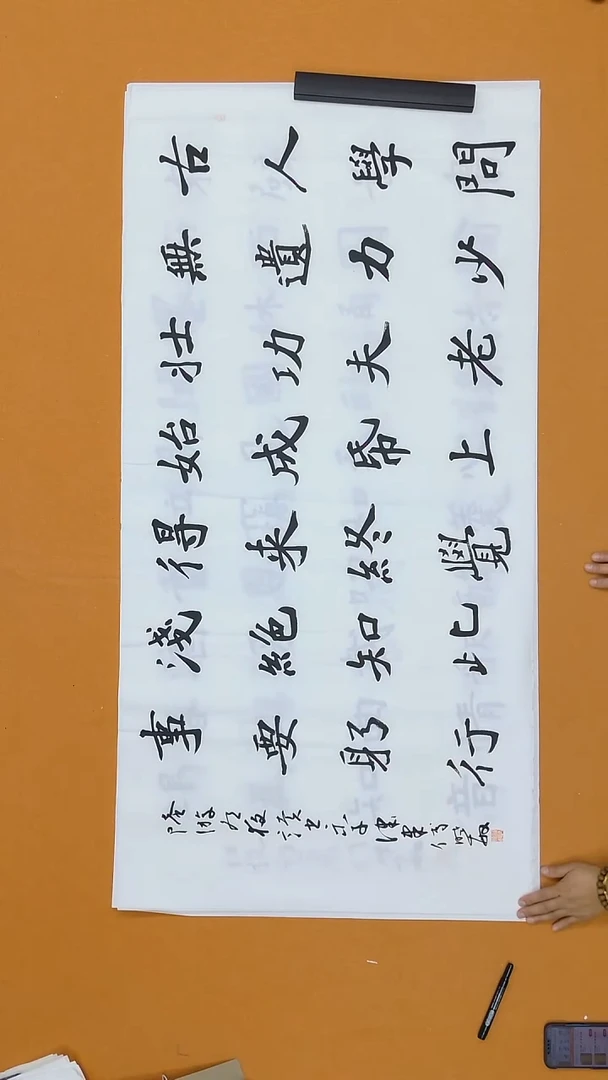 古人學問
無遺力少
壯功夫老
始成帋上
得来終覺
淺絕知此
事要躬行
陸游冬夜讀书示子